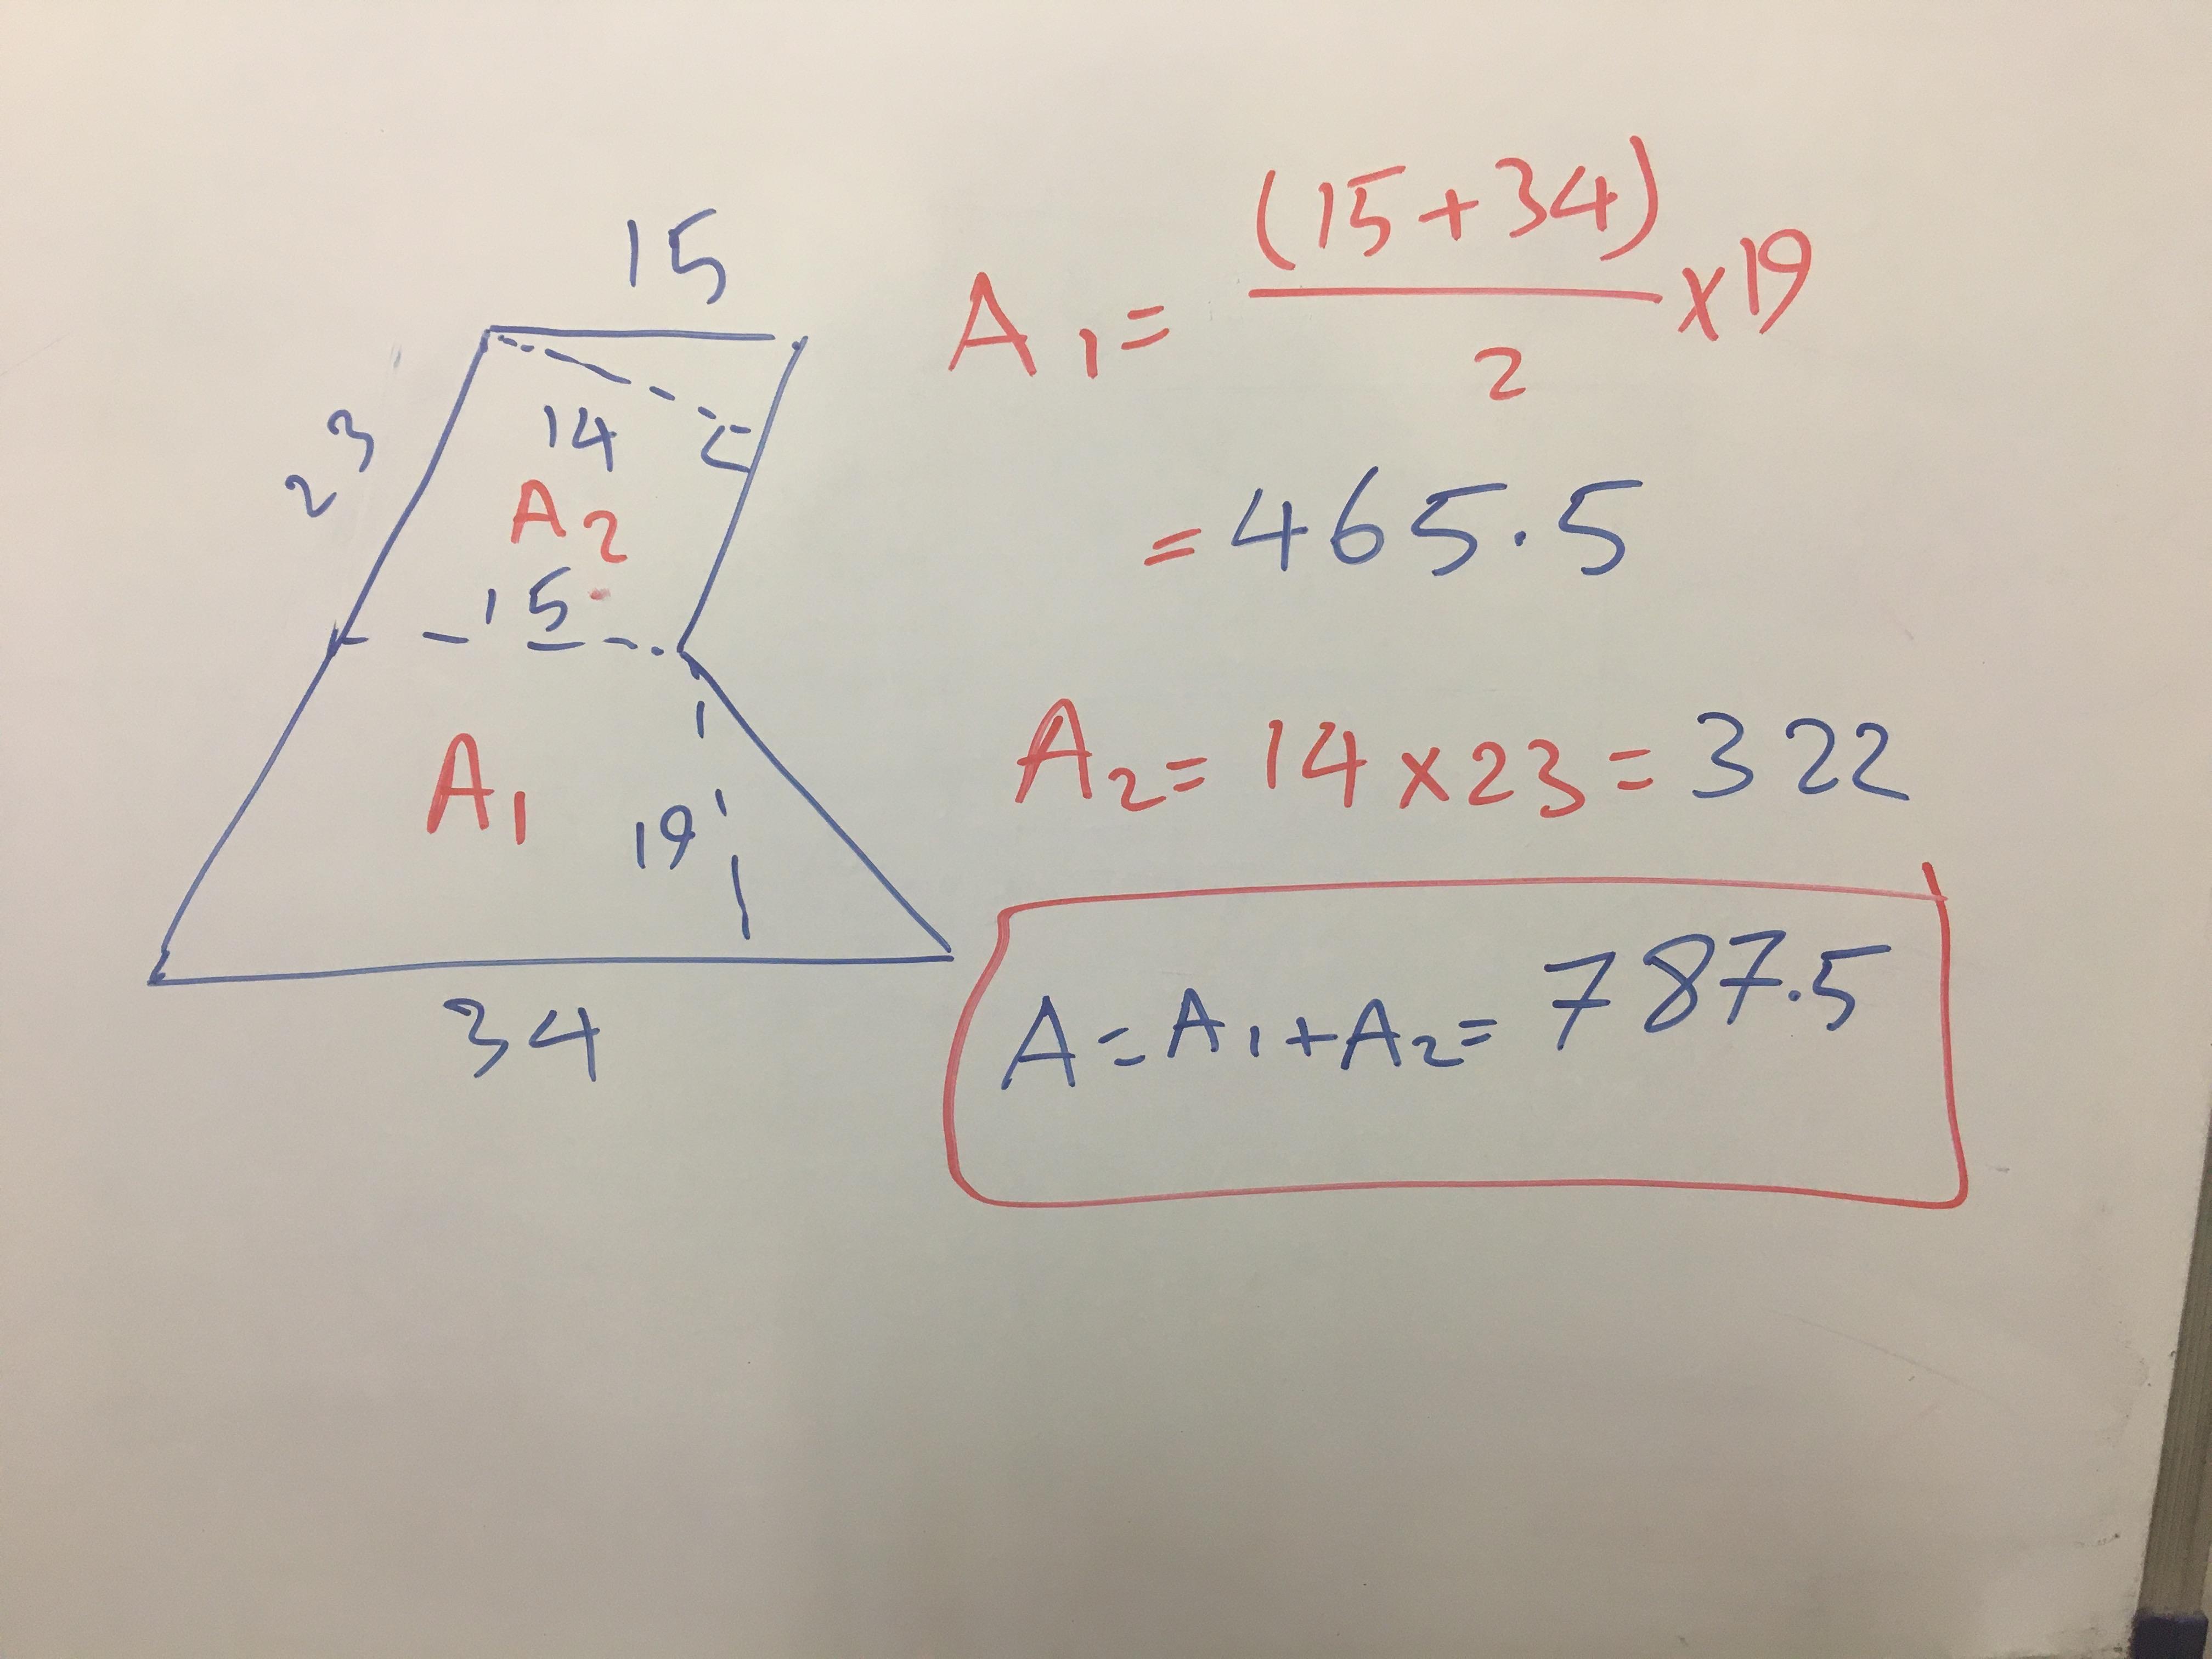 15
23
14
A2
15
A1
19
34
A1 = (15+34)/2 x19
= 465.5
A2 = 14 x 23 = 322
A = A1 + A2 = 787.5